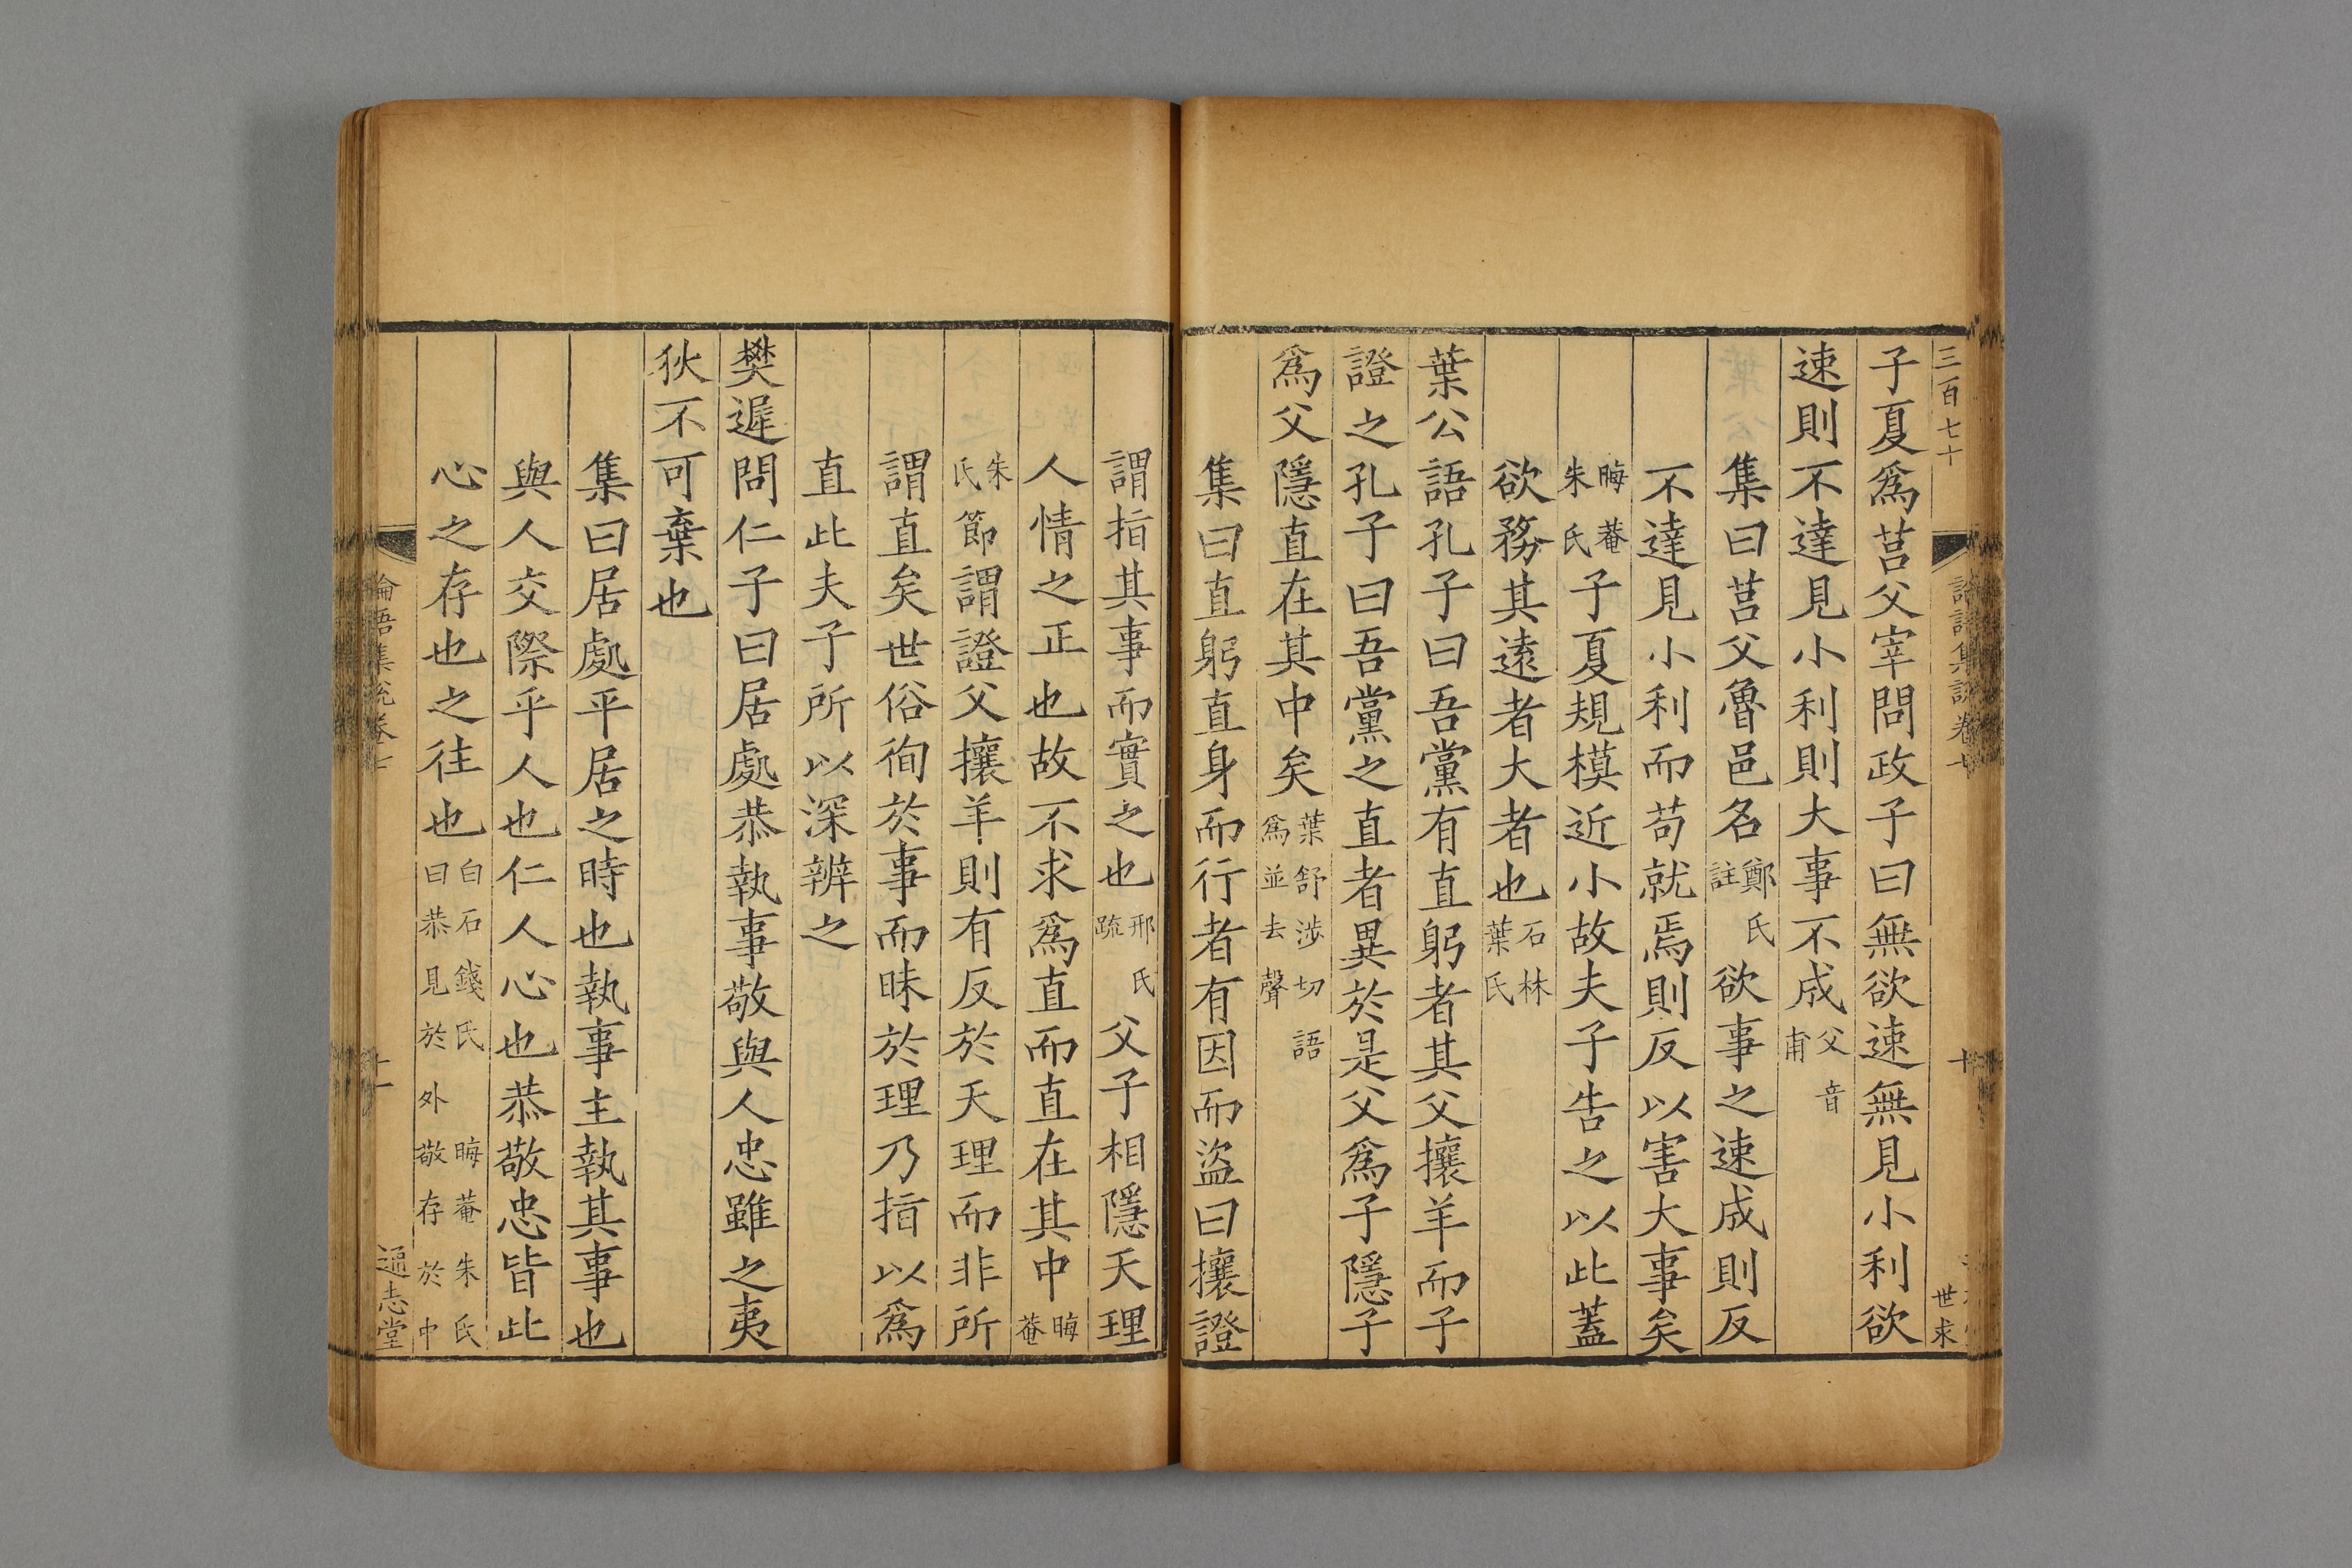 三百七十
世求
子夏爲莒父宰問政子曰無欲速無見小利欲
速則不達見小利則大事不成父音甫
集曰莒父魯邑名鄭氏註欲事之速成則反
不達見小利而苟就焉則反以害大事矣
晦菴朱氏子夏規模近小故夫子告之以此蓋
欲務其遠者大者也石林葉氏
葉公語孔子曰吾黨有直躬者其父攘羊而子
證之孔子曰吾黨之直者異於是父爲子隱子
爲父隱直在其中矣葉舒涉切語爲並去聲
集曰直躬直身而行者有因而盜曰攘證
謂指其事而實之也邢氏疏父子相隱天理
人情之正也故不求爲直而直在其中晦菴
朱氏節謂證父攘羊則有反於天理而非所
謂直矣世俗徇於事而昧於理乃指以爲
直此夫子所以深辨之
樊遲問仁子曰居處恭執事敬與人忠雖之夷
狄不可棄也
集曰居處平居之時也執事主執其事也
與人交際乎人也仁人心也恭敬忠皆此
心之存也之往也白石錢氏晦菴朱氏曰恭見於外敬存於中
論語集說卷七
十一
通志堂